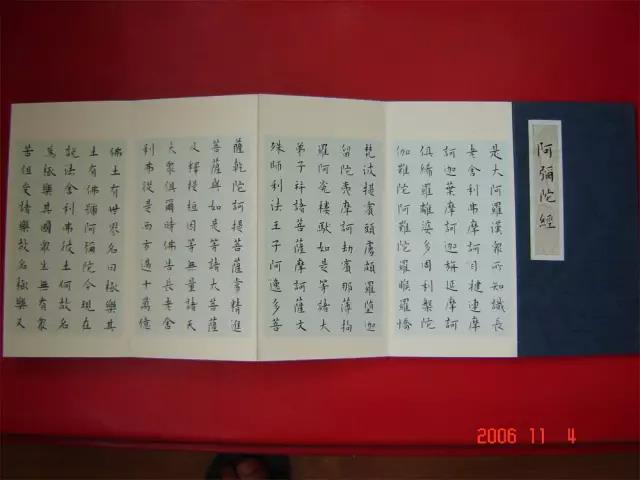 阿彌陀經
是大阿羅漢眾所知識長
老舍利弗摩訶目犍連摩
訶迦葉摩訶迦栴延摩訶
俱絺羅離婆多周利槃陀
伽難陀阿難陀羅睺羅憍
梵波提賓頭盧頗羅墮迦
留陀夷摩訶劫賓那薄拘
羅阿㝹樓馱如是等諸大
弟子并諸菩薩摩訶薩文
殊師利法王子阿逸多菩
薩乾陀訶提菩薩常精進
菩薩與如是等諸大菩薩
及釋提桓因等無量諸天
大眾俱爾時佛告長老舍
利弗從是西方過十萬億
佛土有世界名曰極樂其
土有佛號阿彌陀今現在
說法舍利弗彼土何故名
為極樂其國眾生無有眾
苦但受諸樂故名極樂又
2006 11 4